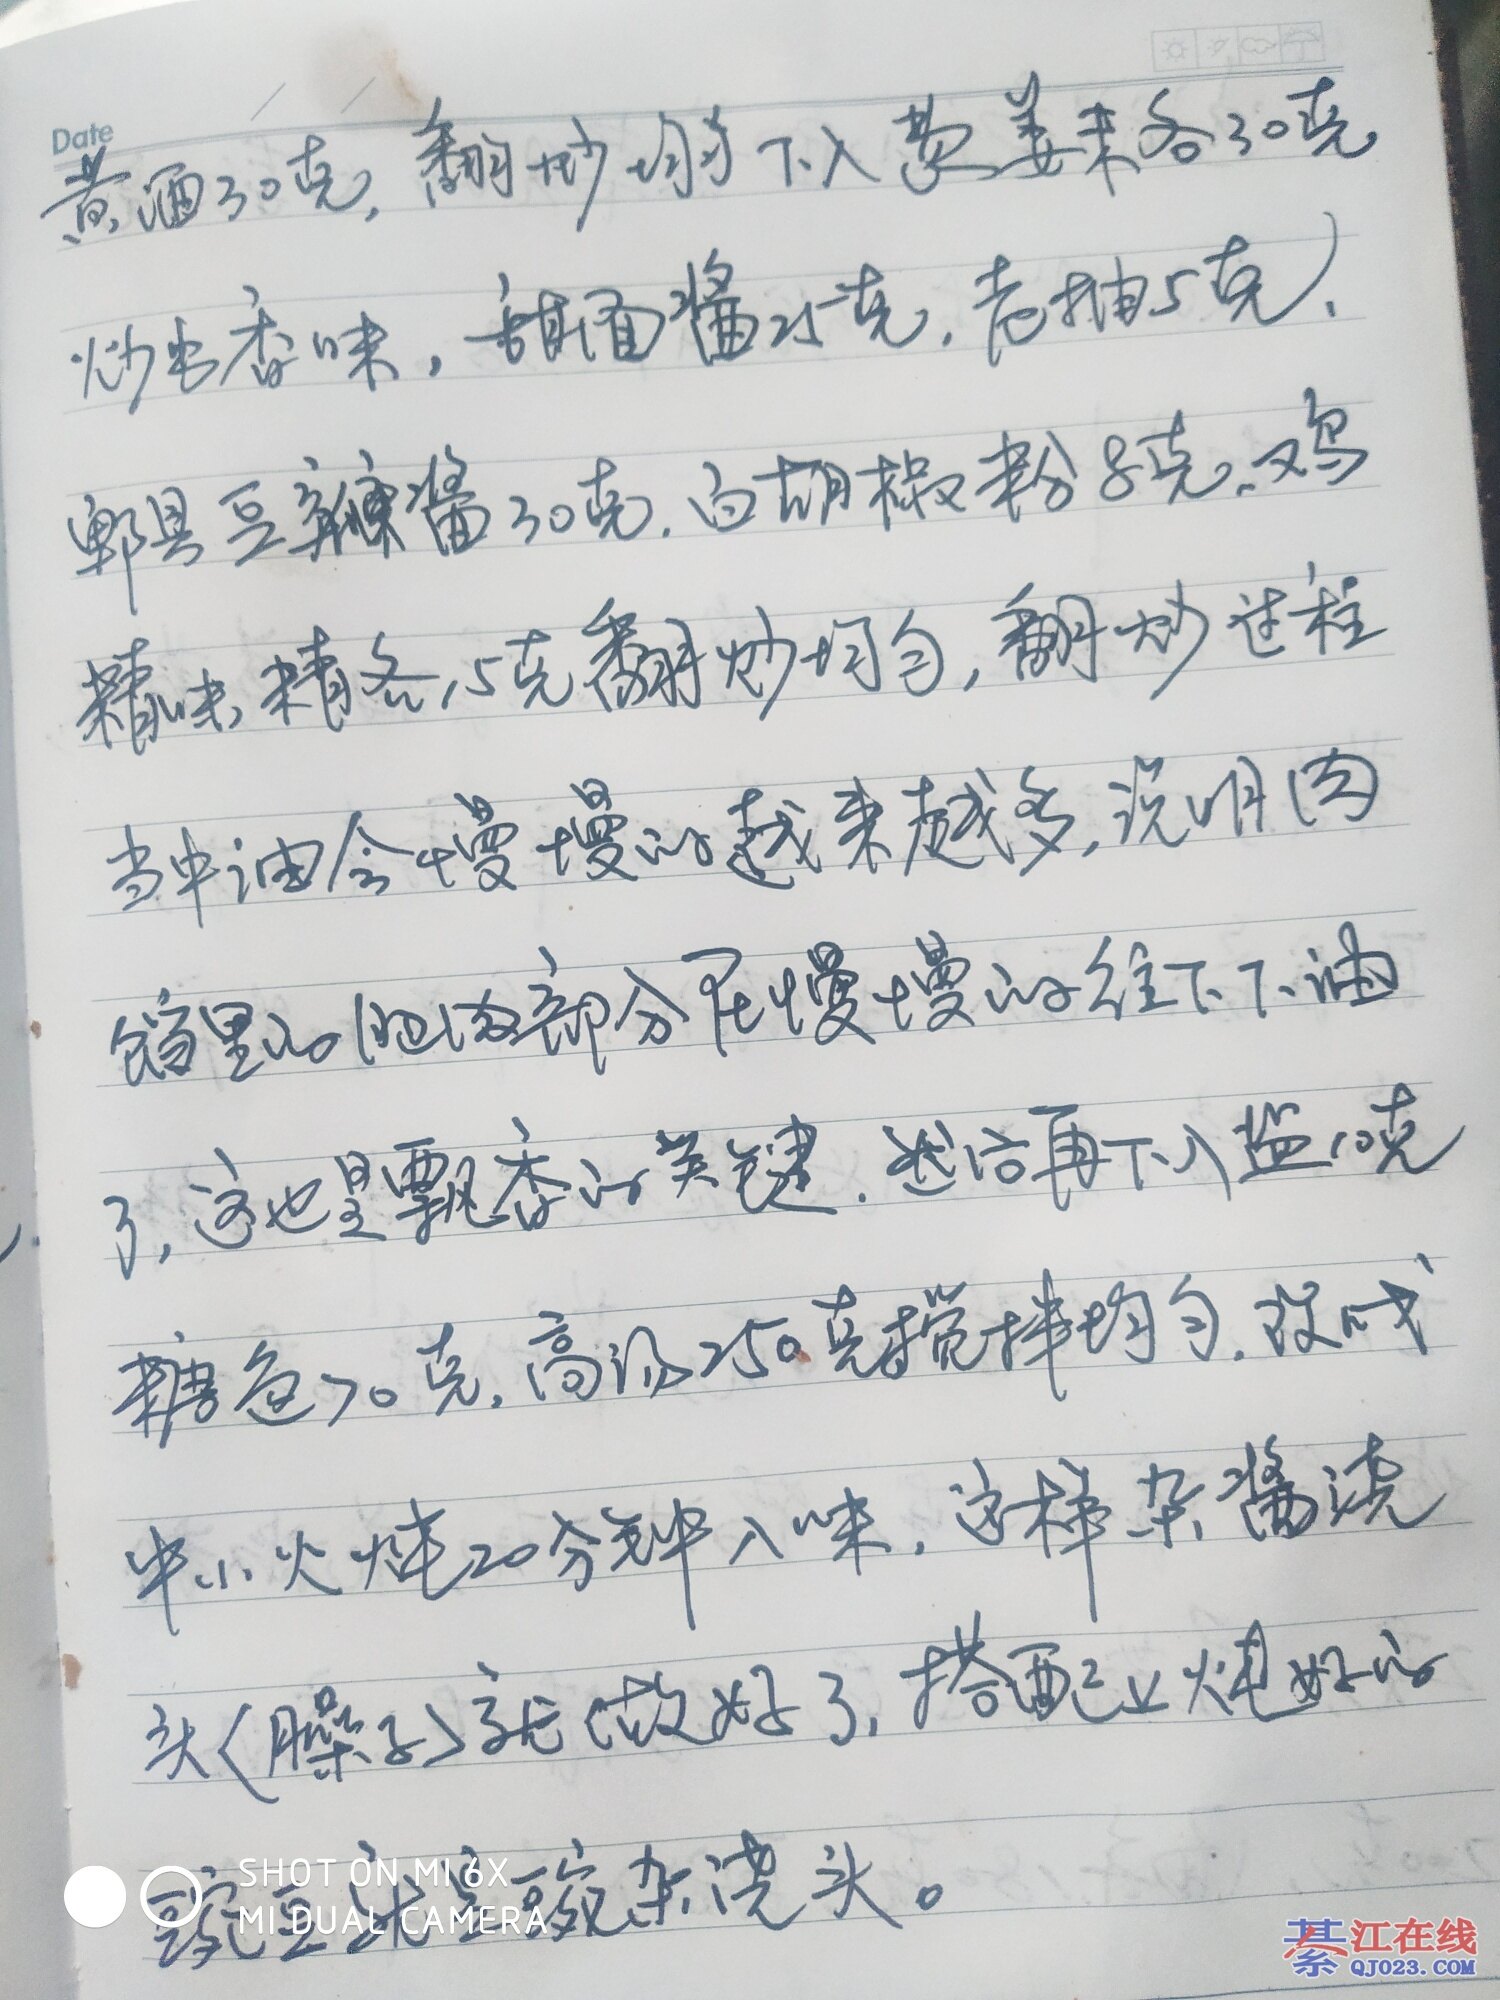 Date
黄酒30克，翻炒均匀下入蒜姜末各30克
炒出香味，甜面酱25克，老抽5克，
郫县豆瓣酱30克，白胡椒粉8克，鸡
精味精各15克翻炒均匀，翻炒过程
当中油会慢慢的越来越多，说明肉
馅里的肥肉部分在慢慢的往下下油
了，这也是飘香的关键．然后再下入盐10克
糖色70克，高汤250克搅拌均匀．改成
中小火炖20分钟入味，这样杂酱浇
头〈臊子〉就做好了，搭配上炖好的
豌豆就是豌杂浇头。
SHOT ON MI 6X
MI DUAL CAMERA
綦江在线
QJ023.COM